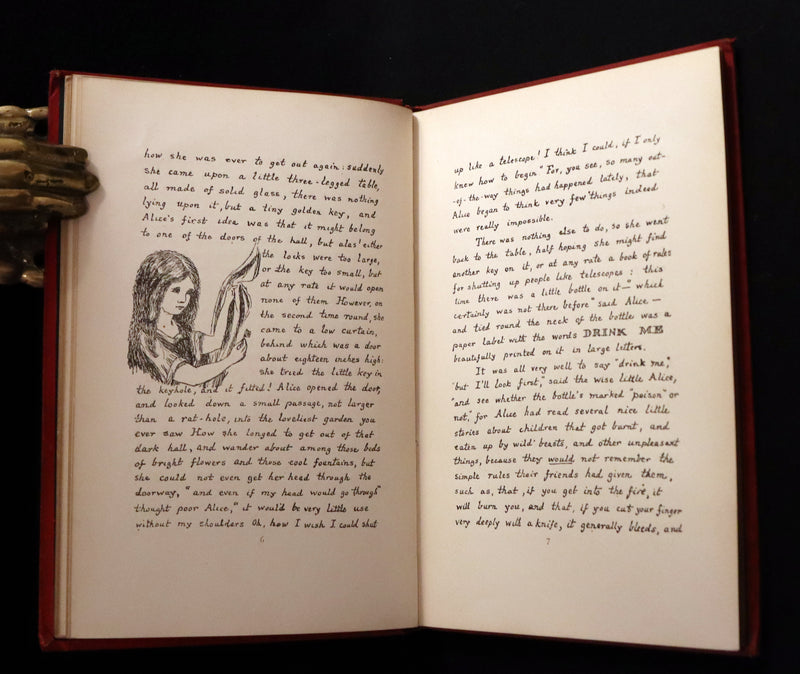 how she was ever to get out again: suddenly
she came upon a little three-legged table,
all made of solid glass; there was nothing
lying upon it, but a tiny golden key, and
Alice's first idea was that it might belong
to one of the doors of the hall, but alas! either
the locks were too large,
or the key too small, but
at any rate it would open
none of them However, on
the second time round, she
came to a low curtain,
behind which was a door
about eighteen inches high:
she tried the little key in
the keyhole, and it fitted! Alice opened the door,
and looked down a small passage, not larger
than a rat-hole, into the loveliest garden you
ever saw How she longed to get out of that
dark hall, and wander about among those beds
of bright flowers and those cool fountains, but
she could not even get her head through the
doorway, "and even if my head would go through"
thought poor Alice," it would be very little use
without my shoulders Oh, how I wish I could shut
6
up like a telescope! I think I could, if I only
knew how to begin" For, you see, so many out-
-of-the-way things had happened lately, that
Alice began to think very few things indeed
were really impossible.
There was nothing else to do, so she went
back to the table, half hoping she might find
another key on it, or at any rate a book of rules
for shutting up people like telescopes: this
time there was a little bottle on it—"which
certainly was not there before" said Alice—
and tied round the neck of the bottle was a
paper label with the words DRINK ME
beautifully printed on it in large letters.
It was all very well to say "drink me,"
"but I'll look first," said the wise little Alice,
"and see whether the bottle's marked "poison" or
not," for Alice had read several nice little
stories about children that got burnt, and
eaten up by wild beasts, and other unpleasant
things, because they would not remember the
simple rules their friends had given them,
such as, that, if you get into the fire, it
will burn you, and that, if you cut your finger
very deeply with a knife, it generally bleeds, and
7